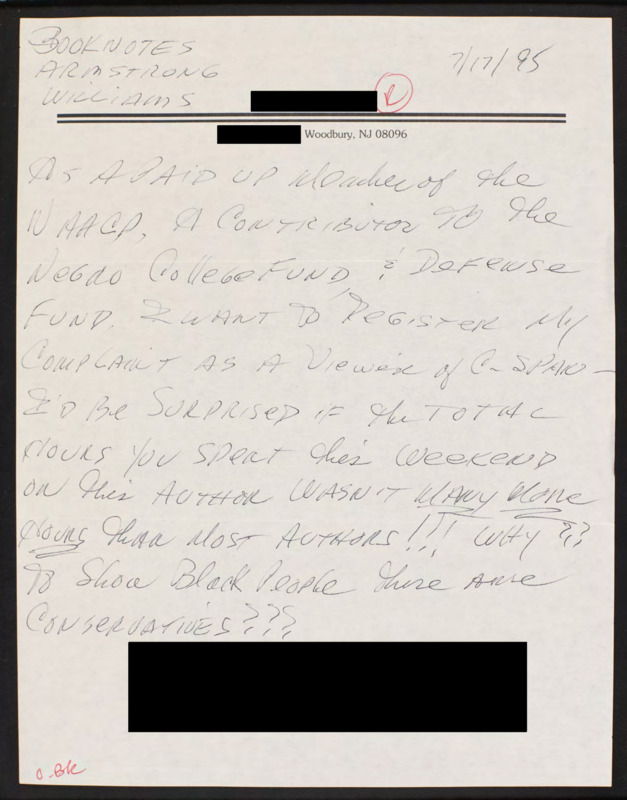 BOOKNOTES
ARMSTRONG
WILLIAMS
7/17/95
R
Woodbury, NJ 08096
AS A PAID UP Member of the
NAACP, A CONTRIBUTOR TO the
Negro College FUND, & DeFense
FUND, I WANT TO Register My
Complaint AS A Viewer of C-SPAN -
I'D Be SURPRISED IF the TOTAL
HOURS YOU SPENT this WEEKEND
ON this AUTHOR WASN'T MANY More
Hours than MOST AUTHORS!!! WHY??
TO Show Black People there are
CONSERVATIVES???
O-BK